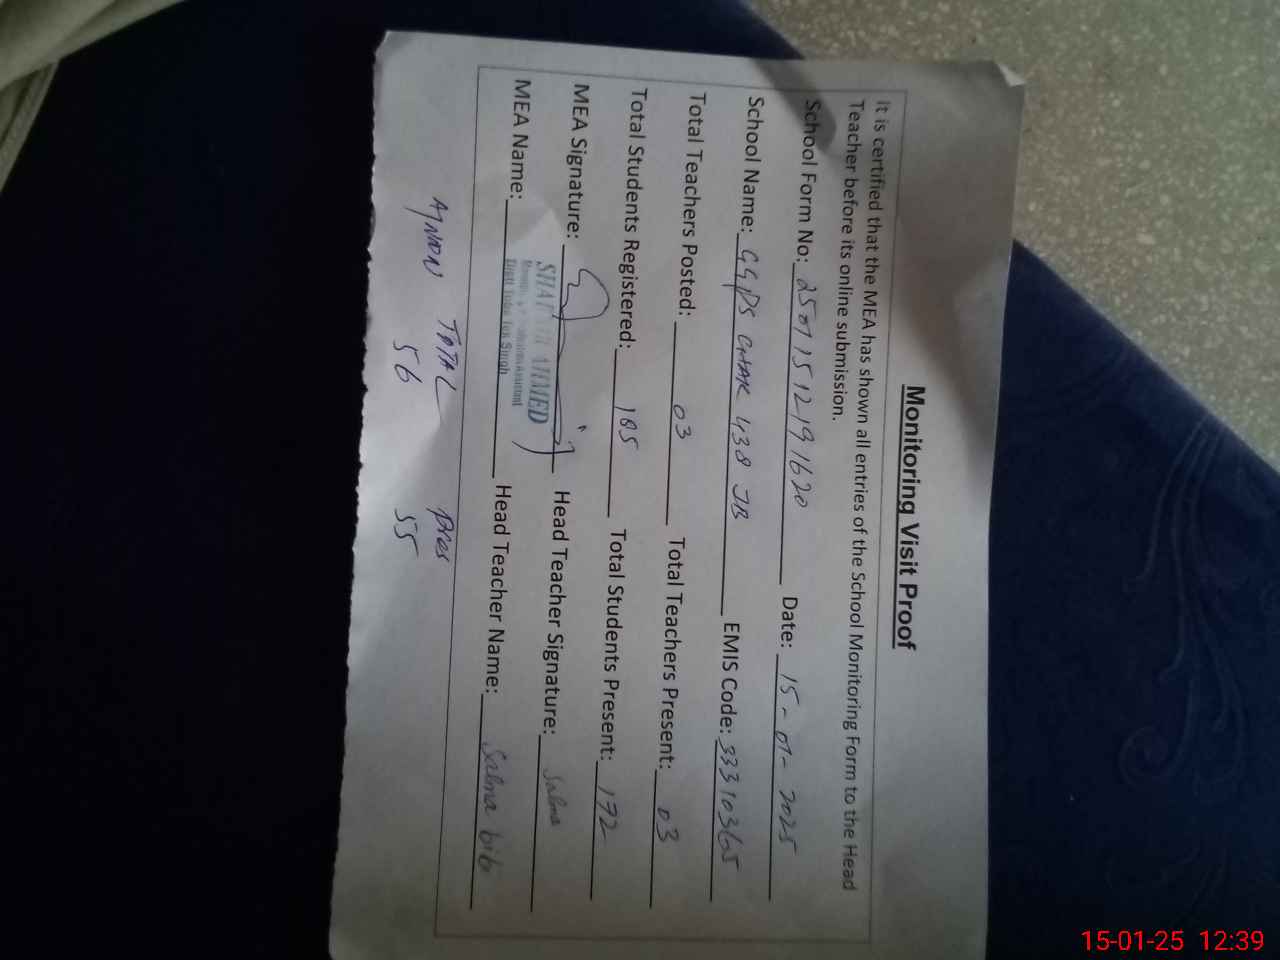 Monitoring Visit Proof
It is certified that the MEA has shown all entries of the School Monitoring Form to the Head
Teacher before its online submission.
School Form No: 25011512191620 Date: 15-01-2025
School Name: GGPS CHAK 438 JB EMIS Code: 33310365
Total Teachers Posted: 03 Total Teachers Present: 03
Total Students Registered: 185 Total Students Present: 172
MEA Signature: Head Teacher Signature: Salma
AHMED
Assistant
Singh
MEA Name: Head Teacher Name: Salma bibi
TOTAL Pres
56 55
15-01-25 12:39